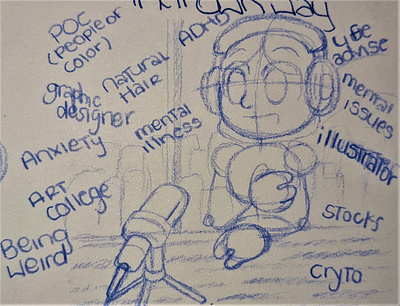 ADHD
POC
(People of
Color)
Life
advise
Natural
Hair
graphic
designer
mental
issues
mental
illness
Anxiety
illustrator
ART
college
STOCKS
Being
Weird
Cryto